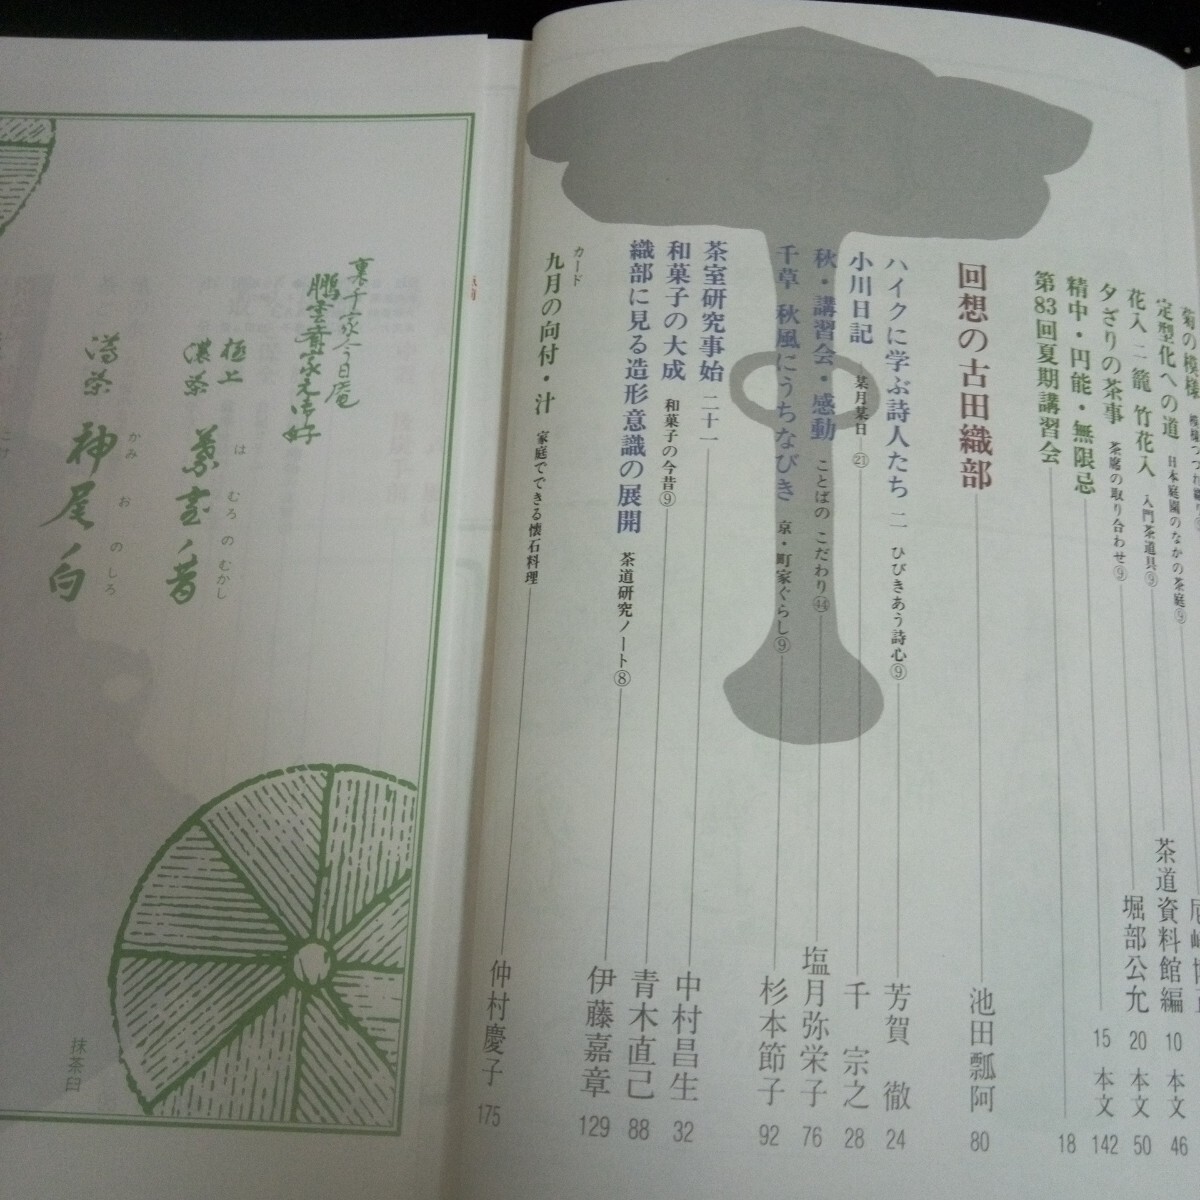 菊の模様
定型化への道 日本庭園のなかの茶庭⑨
茶道資料館編 10 本文 46
花入 二 籠 竹花入 入門茶道具⑨
堀部公允 20 本文 50
夕ざりの茶事 茶席の取り合わせ⑨
15 本文 142
精中・円能・無限忌
第83回夏期講習会
18
回想の古田織部
池田瓢阿 80
ハイクに学ぶ詩人たち 二 ひびきあう詩心⑨
芳賀 徹 24
小川日記 某月某日 ㉑
千 宗之 28
秋・講習会・感動 ことばの こだわり㊹
塩月弥栄子 76
千草 秋風にうちなびき 京・町家ぐらし⑨
杉本節子 92
茶室研究事始 二十一
中村昌生 32
和菓子の大成 和菓子の今昔⑨
青木直己 88
織部に見る造形意識の展開 茶道研究ノート⑧
伊藤嘉章 129
カード
九月の向付・汁 家庭でできる懐石料理
仲村慶子 175
裏千家今日庵
鵬雲斎家元御好
極上
濃茶 萬室ノ昔
は むろ の むかし
薄茶 神尾ノ白
かみ お の しろ
抹茶臼